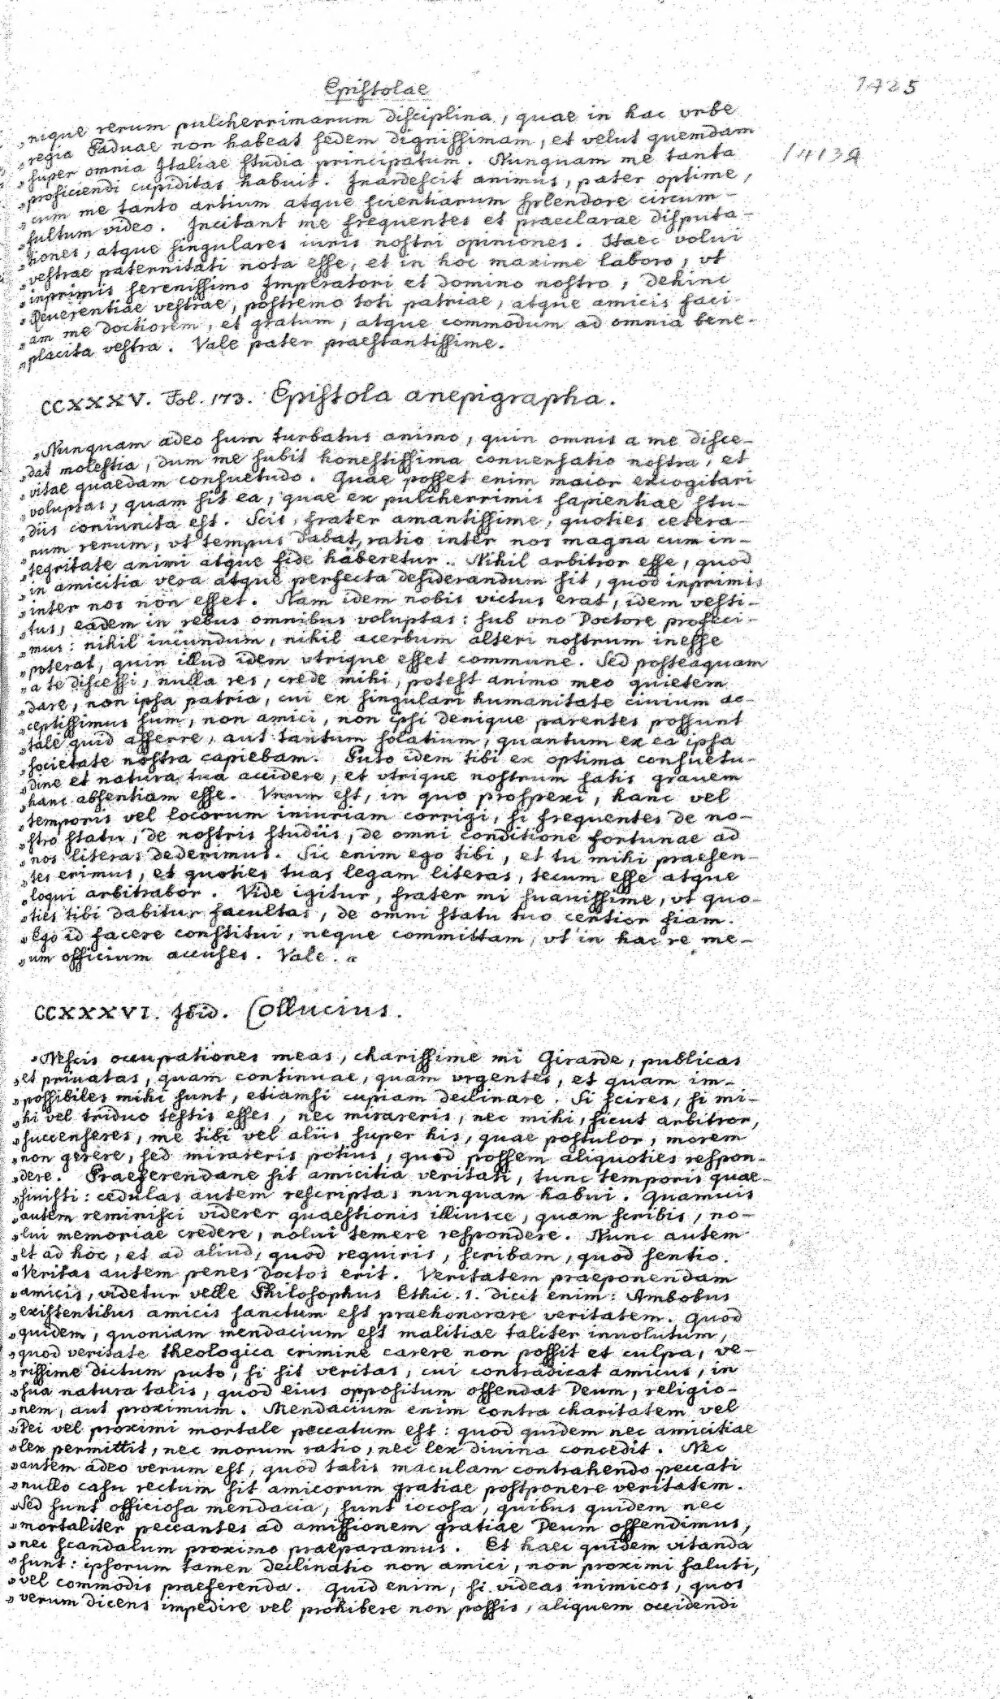 Epistolae
1425
„nique rerum pulcherrimarum disciplina, quae in hac vrbe
„regia Paduae non habeat sedem dignissimam, et velut quemdam
14139
„super omnia Italiae studia principatum. Nunquam me tanta
„proficiendi cupiditas habuit. Inardescit animus, pater optime,
„cum me tanto artium atque scientiarum splendore circum-
„fultum video. Incitant me frequentes et praeclarae disputa-
„tiones, atque singulares iuris nostri opiniones. Haec volui
„vestrae paternitati nota esse, et in hoc maxime laboro, vt
„inprimis serenissimo Imperatori et domino nostro, dehinc
„Reuerentiae vestrae, postremo toti patriae, atque amicis faci-
„am me doctiorem, et gratum, atque commodum ad omnia bene-
„placita vestra. Vale pater praestantissime.
CCXXXV. Fol. 173. Epistola anepigrapha.
„Nunquam adeo sum turbatus animo, quin omnis a me disce-
„dat molestia, dum me subit honestissima conuersatio nostra, et
„vitae quaedam consuetudo. Quae posset enim maior excogitari
„voluptas, quam sit ea, quae ex pulcherrimis sapientiae stu-
„diis coniuncta est. Scis, frater amantissime, quoties cetera-
„rum rerum, vt tempus dabat, ratio inter nos magna cum in-
„tegritate animi atque fide haberetur. Nihil arbitror esse, quod
„in amicitia vera atque perfecta desiderandum sit, quod inprimis
„inter nos non esset. Nam idem nobis victus erat, idem vesti-
„tus, eadem in rebus omnibus voluptas: sub vno Doctore profeci-
„mus: nihil iucundum, nihil acerbum alteri nostrum inesse
„poterat, quin illud idem vtrique esset commune. Sed posteaquam
„a te discessi, nulla res, crede mihi, potest animo meo quietem
„dare, non ipsa patria, cui ex singulari humanitate ciuium ac-
„ceptissimus sum, non amici, non ipsi denique parentes possunt
„tale quid afferre, aut tantum solatium, quantum ex ea ipsa
„societate nostra capiebam. Puto idem tibi ex optima consuetu-
„dine et natura tua accidere, et vtrique nostrum satis grauem
„hanc absentiam esse. Vnum est, in quo prospexi, hanc vel
„temporis vel locorum iniuriam corrigi, si frequentes de no-
„stro statu, de nostris studiis, de omni conditione fortunae ad
„nos literas dederimus. Sic enim ego tibi, et tu mihi praesen-
„tes erimus, et quoties tuas legam literas, tecum esse atque
„loqui arbitrabor. Vide igitur, frater mi suauissime, vt quo-
„ties tibi dabitur facultas, de omni statu tuo certior fiam.
„Ego id facere constitui, neque committam, vt in hac re me-
„um officium accuses. Vale. “
CCXXXVI. Ibid. Collucius.
„Nescis occupationes meas, charissime mi Girarde, publicas
„et priuatas, quam continuae, quam vrgentes, et quam im-
„possibiles mihi sunt, etiamsi cupiam declinare. Si scires, si mi-
„hi vel triduo testis esses, nec mirareris, nec mihi, sicut arbitror,
„succenseres, me tibi vel aliis super his, quae postulor, morem
„non gerere, sed mirareris potius, quod possem aliquoties respon-
„dere. Praeferendane sit amicitia veritati, tunc temporis quae-
„siuisti: cedulas autem rescriptas nunquam habui. Quamuis
„autem reminisci viderer quaestionis illiusce, quam scribis, no-
„lui memoriae credere, nolui temere respondere. Nunc autem
„et ad hoc, et ad aliud, quod requiris, scribam, quod sentio.
„Veritas autem penes doctos erit. Veritatem praeponendam
„amicis, videtur velle Philosophus Ethic. 1. dicit enim: Ambobus
„existentibus amicis sanctum est praehonorare veritatem. Quod
„quidem, quoniam mendacium est malitiae taliter inuolutum,
„quod veritate theologica crimine carere non possit et culpa, ve-
„rissime dictum puto, si sit veritas, cui contradicat amicus, in
„sua natura talis, quod eius oppositum offendat Deum, religio-
„nem, aut proximum. Mendacium enim contra charitatem vel
„Dei vel proximi mortale peccatum est: quod quidem nec amicitiae
„lex permittit, nec morum ratio, nec lex diuina concedit. Nec
„autem adeo verum est, quod talis maculam contrahendo peccati
„nullo casu rectum sit amicorum gratiae postponere veritatem.
„Sed sunt officiosa mendacia, sunt iocosa, quibus quidem nec
„mortaliter peccantes ad amissionem gratiae Deum offendimus,
„nec scandalum proximo praeparamus. Et haec quidem vitanda
„sunt: ipsorum tamen declinatio non amici, non proximi saluti,
„vel commodis praeferenda. Quid enim, si videas inimicos, quos
„verum dicens impedire vel prohibere non possis, aliquem occidendi